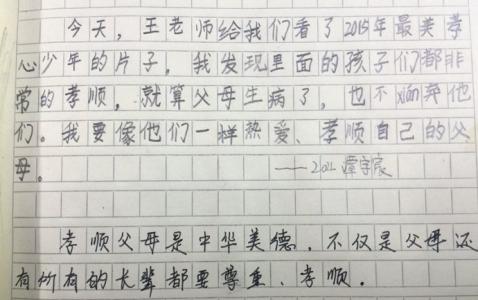 今天，王老师给我们看了2015年最美孝
心少年的片子，我发现里面的孩子们都非
常的孝顺，就算父母生病了，也不xián弃他
们。我要像他们一样热爱、孝顺自己的父
母。
孝顺父母是中华美德．不仅是父母还
有所有的长辈都要尊重、孝顺．